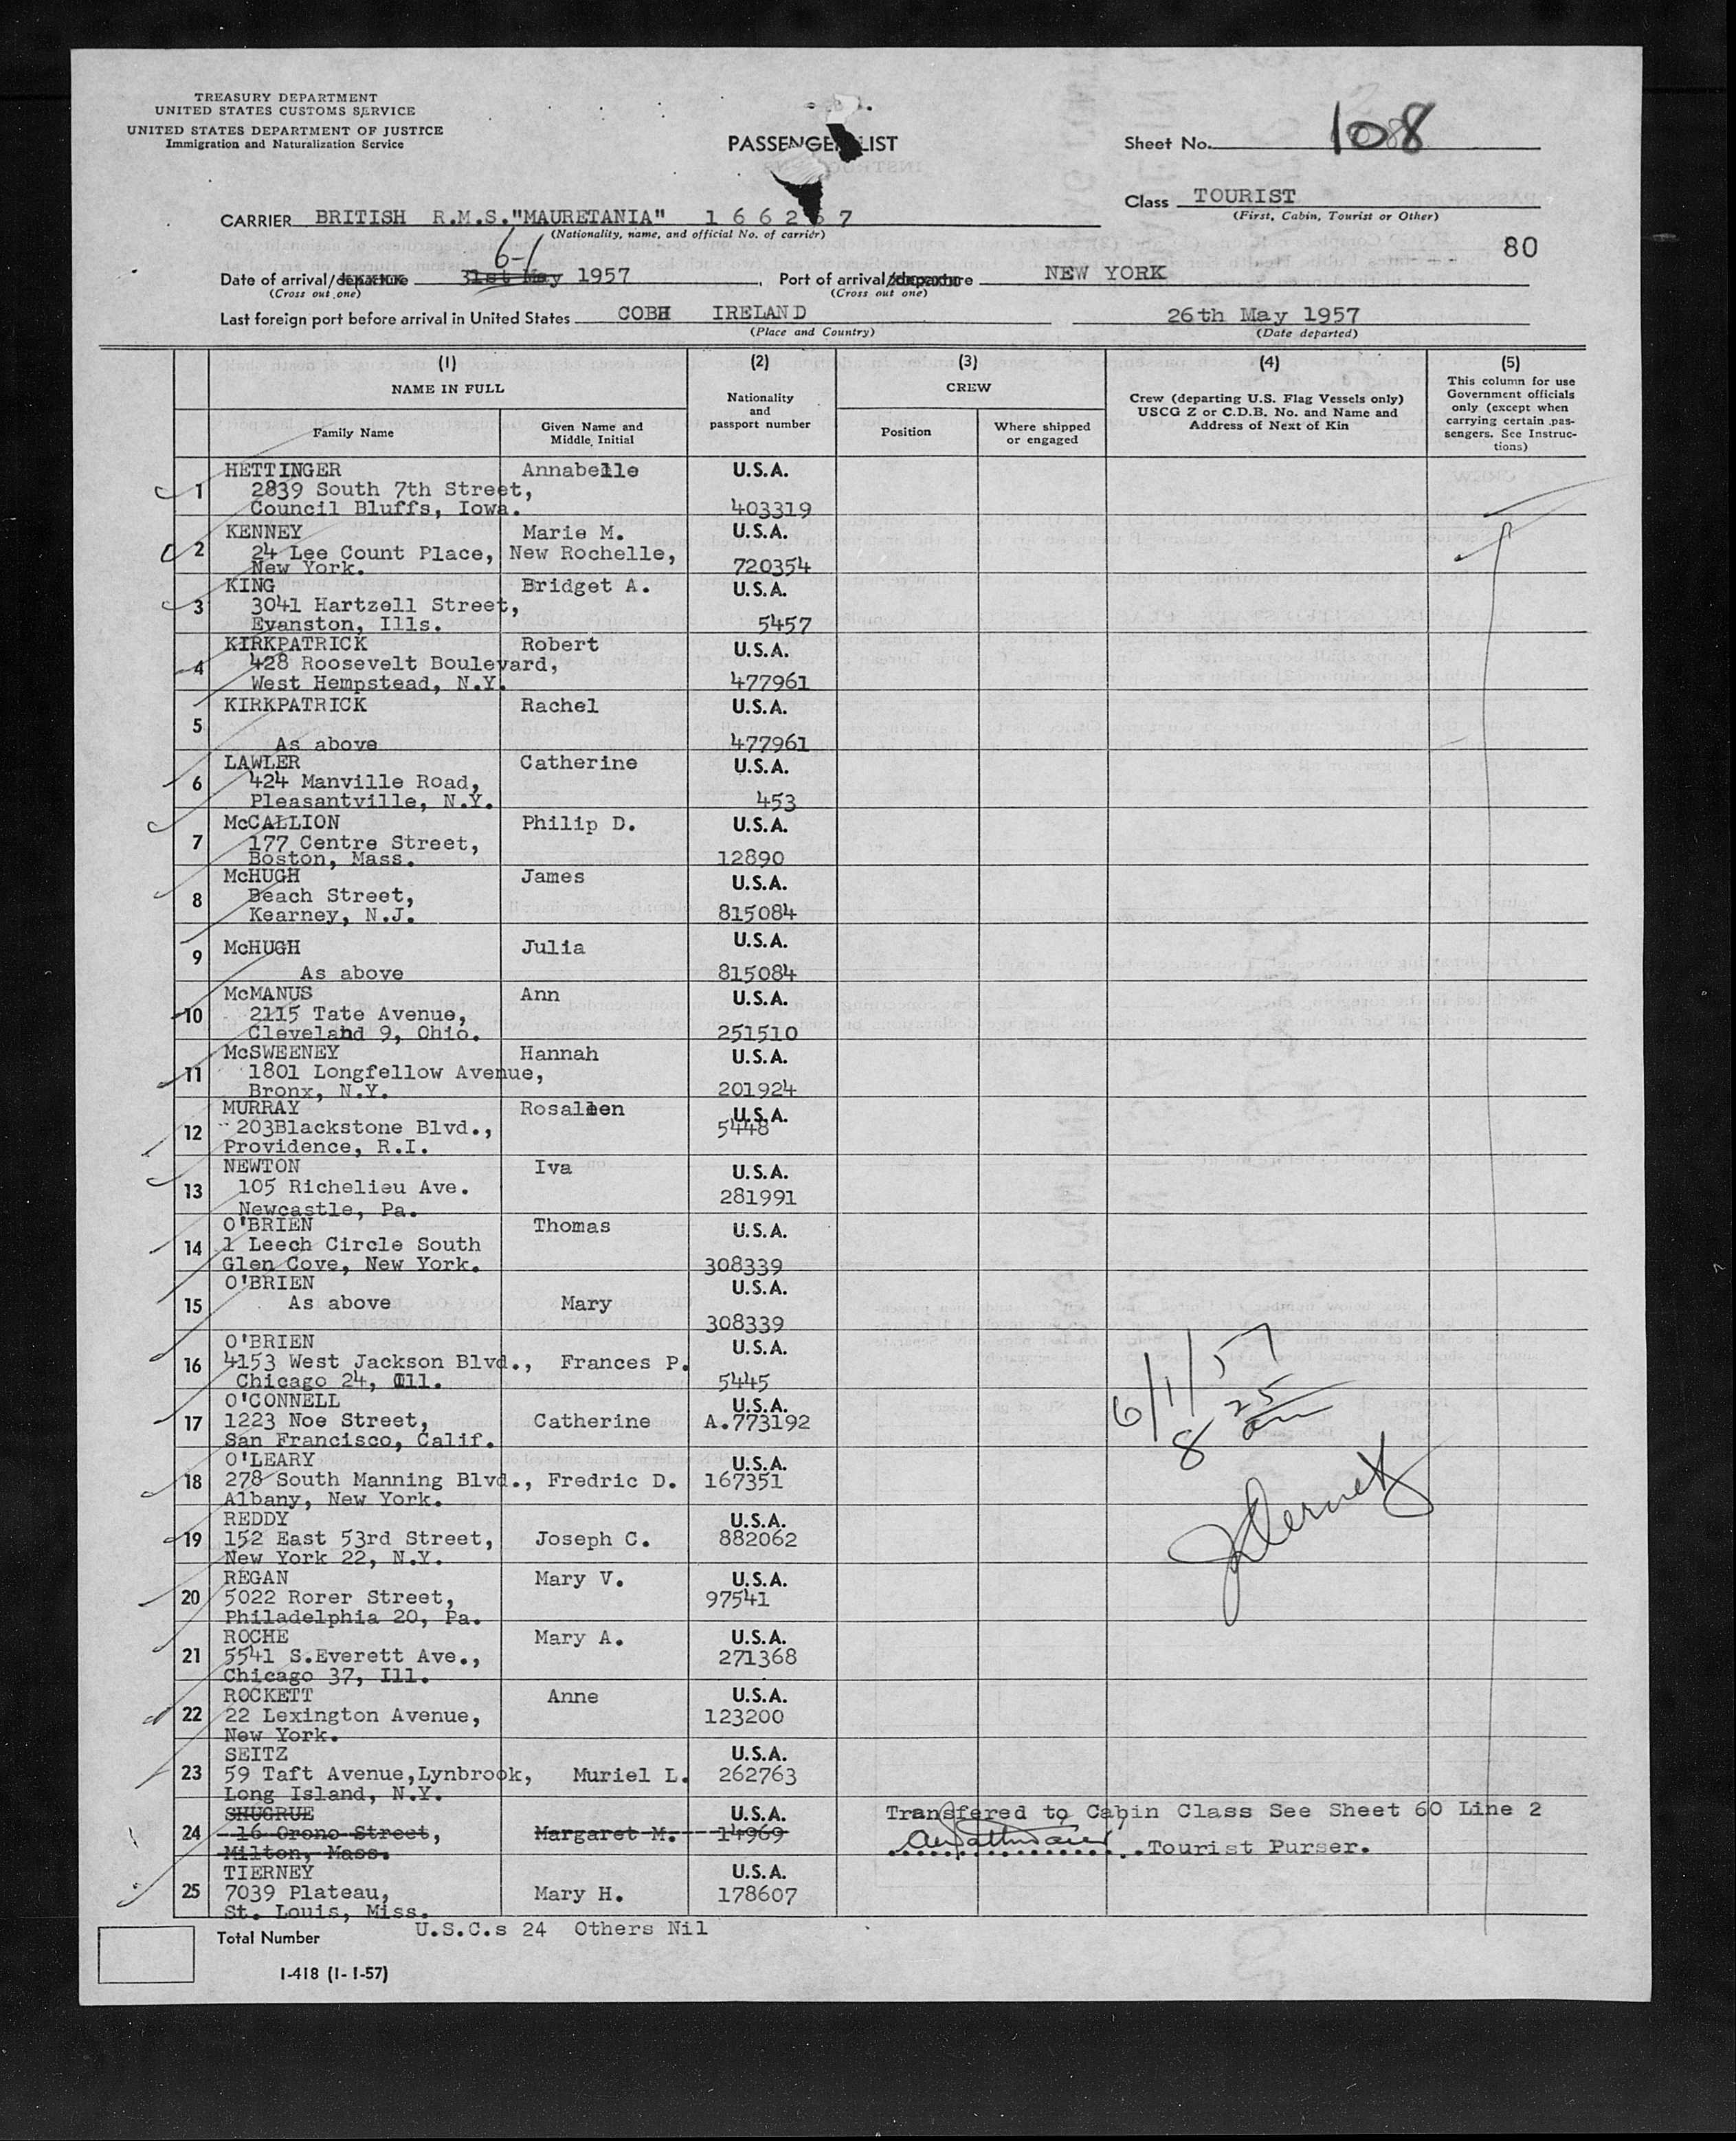 TREASURY DEPARTMENT
UNITED STATES CUSTOMS SERVICE
UNITED STATES DEPARTMENT OF JUSTICE
Immigration and Naturalization Service
PASSENGER LIST
Sheet No. 108
Class TOURIST
(First, Cabin, Tourist or Other)
CARRIER BRITISH R.M.S."MAURETANIA" 1 6 6 2 7
(Nationality, name, and official No. of carrier)
80
6-1
Date of arrival/departure 31st May 1957
Port of arrival/departure NEW YORK
(Cross out one) (Cross out one)
Last foreign port before arrival in United States COBH IRELAND 26th May 1957
(Place and Country) (Date departed)
(1) (2) (3) (4) (5)
NAME IN FULL
Nationality and passport number
CREW
Crew (departing U.S. Flag Vessels only)
USCG Z or C.D.B. No. and Name and
Address of Next of Kin
This column for use
Government officials
only (except when
carrying certain pas-
sengers. See Instruc-
tions)
Family Name
Given Name and
Middle Initial
Position
Where shipped
or engaged
1 HETTINGER Annabelle U.S.A.
2839 South 7th Street,
Council Bluffs, Iowa. 403319
2 KENNEY Marie M. U.S.A.
24 Lee Count Place, New Rochelle,
New York. 720354
3 KING Bridget A. U.S.A.
3041 Hartzell Street,
Evanston, Ills. 5457
4 KIRKPATRICK Robert U.S.A.
428 Roosevelt Boulevard,
West Hempstead, N.Y. 477961
5 KIRKPATRICK Rachel U.S.A.
As above 477961
6 LAWLER Catherine U.S.A.
424 Manville Road,
Pleasantville, N.Y. 453
7 McCALLION Philip D. U.S.A.
177 Centre Street,
Boston, Mass. 12890
8 McHUGH James U.S.A.
Beach Street,
Kearney, N.J. 815084
9 McHUGH Julia U.S.A.
As above 815084
10 McMANUS Ann U.S.A.
2115 Tate Avenue,
Cleveland 9, Ohio. 251510
11 McSWEENEY Hannah U.S.A.
1801 Longfellow Avenue,
Bronx, N.Y. 201924
12 MURRAY Rosaleen U.S.A.
203Blackstone Blvd., 5448
Providence, R.I.
13 NEWTON Iva U.S.A.
105 Richelieu Ave. 281991
Newcastle, Pa.
14 O'BRIEN Thomas U.S.A.
1 Leech Circle South
Glen Cove, New York. 308339
15 O'BRIEN U.S.A.
As above Mary
308339
16 O'BRIEN U.S.A.
4153 West Jackson Blvd., Frances P.
Chicago 24, Ill. 5445
17 O'CONNELL U.S.A.
1223 Noe Street, Catherine A.773192
San Francisco, Calif.
18 O'LEARY U.S.A.
278 South Manning Blvd., Fredric D. 167351
Albany, New York.
19 REDDY U.S.A.
152 East 53rd Street, Joseph C. 882062
New York 22, N.Y.
20 REGAN Mary V. U.S.A.
5022 Rorer Street, 97541
Philadelphia 20, Pa.
21 ROCHE Mary A. U.S.A.
5541 S.Everett Ave., 271368
Chicago 37, Ill.
22 ROCKETT Anne U.S.A.
22 Lexington Avenue, 123200
New York.
23 SEITZ U.S.A.
59 Taft Avenue,Lynbrook, Muriel L. 262763
Long Island, N.Y.
24 SHUGRUE U.S.A. Transfered to Cabin Class See Sheet 60 Line 2
16 Orono Street, Margaret M. 14969
Milton, Mass. Tourist Purser.
25 TIERNEY U.S.A.
7039 Plateau, Mary H. 178607
St. Louis, Miss.
6/1/57
8 25 am
Total Number U.S.C.s 24 Others Nil
I-418 (1-1-57)